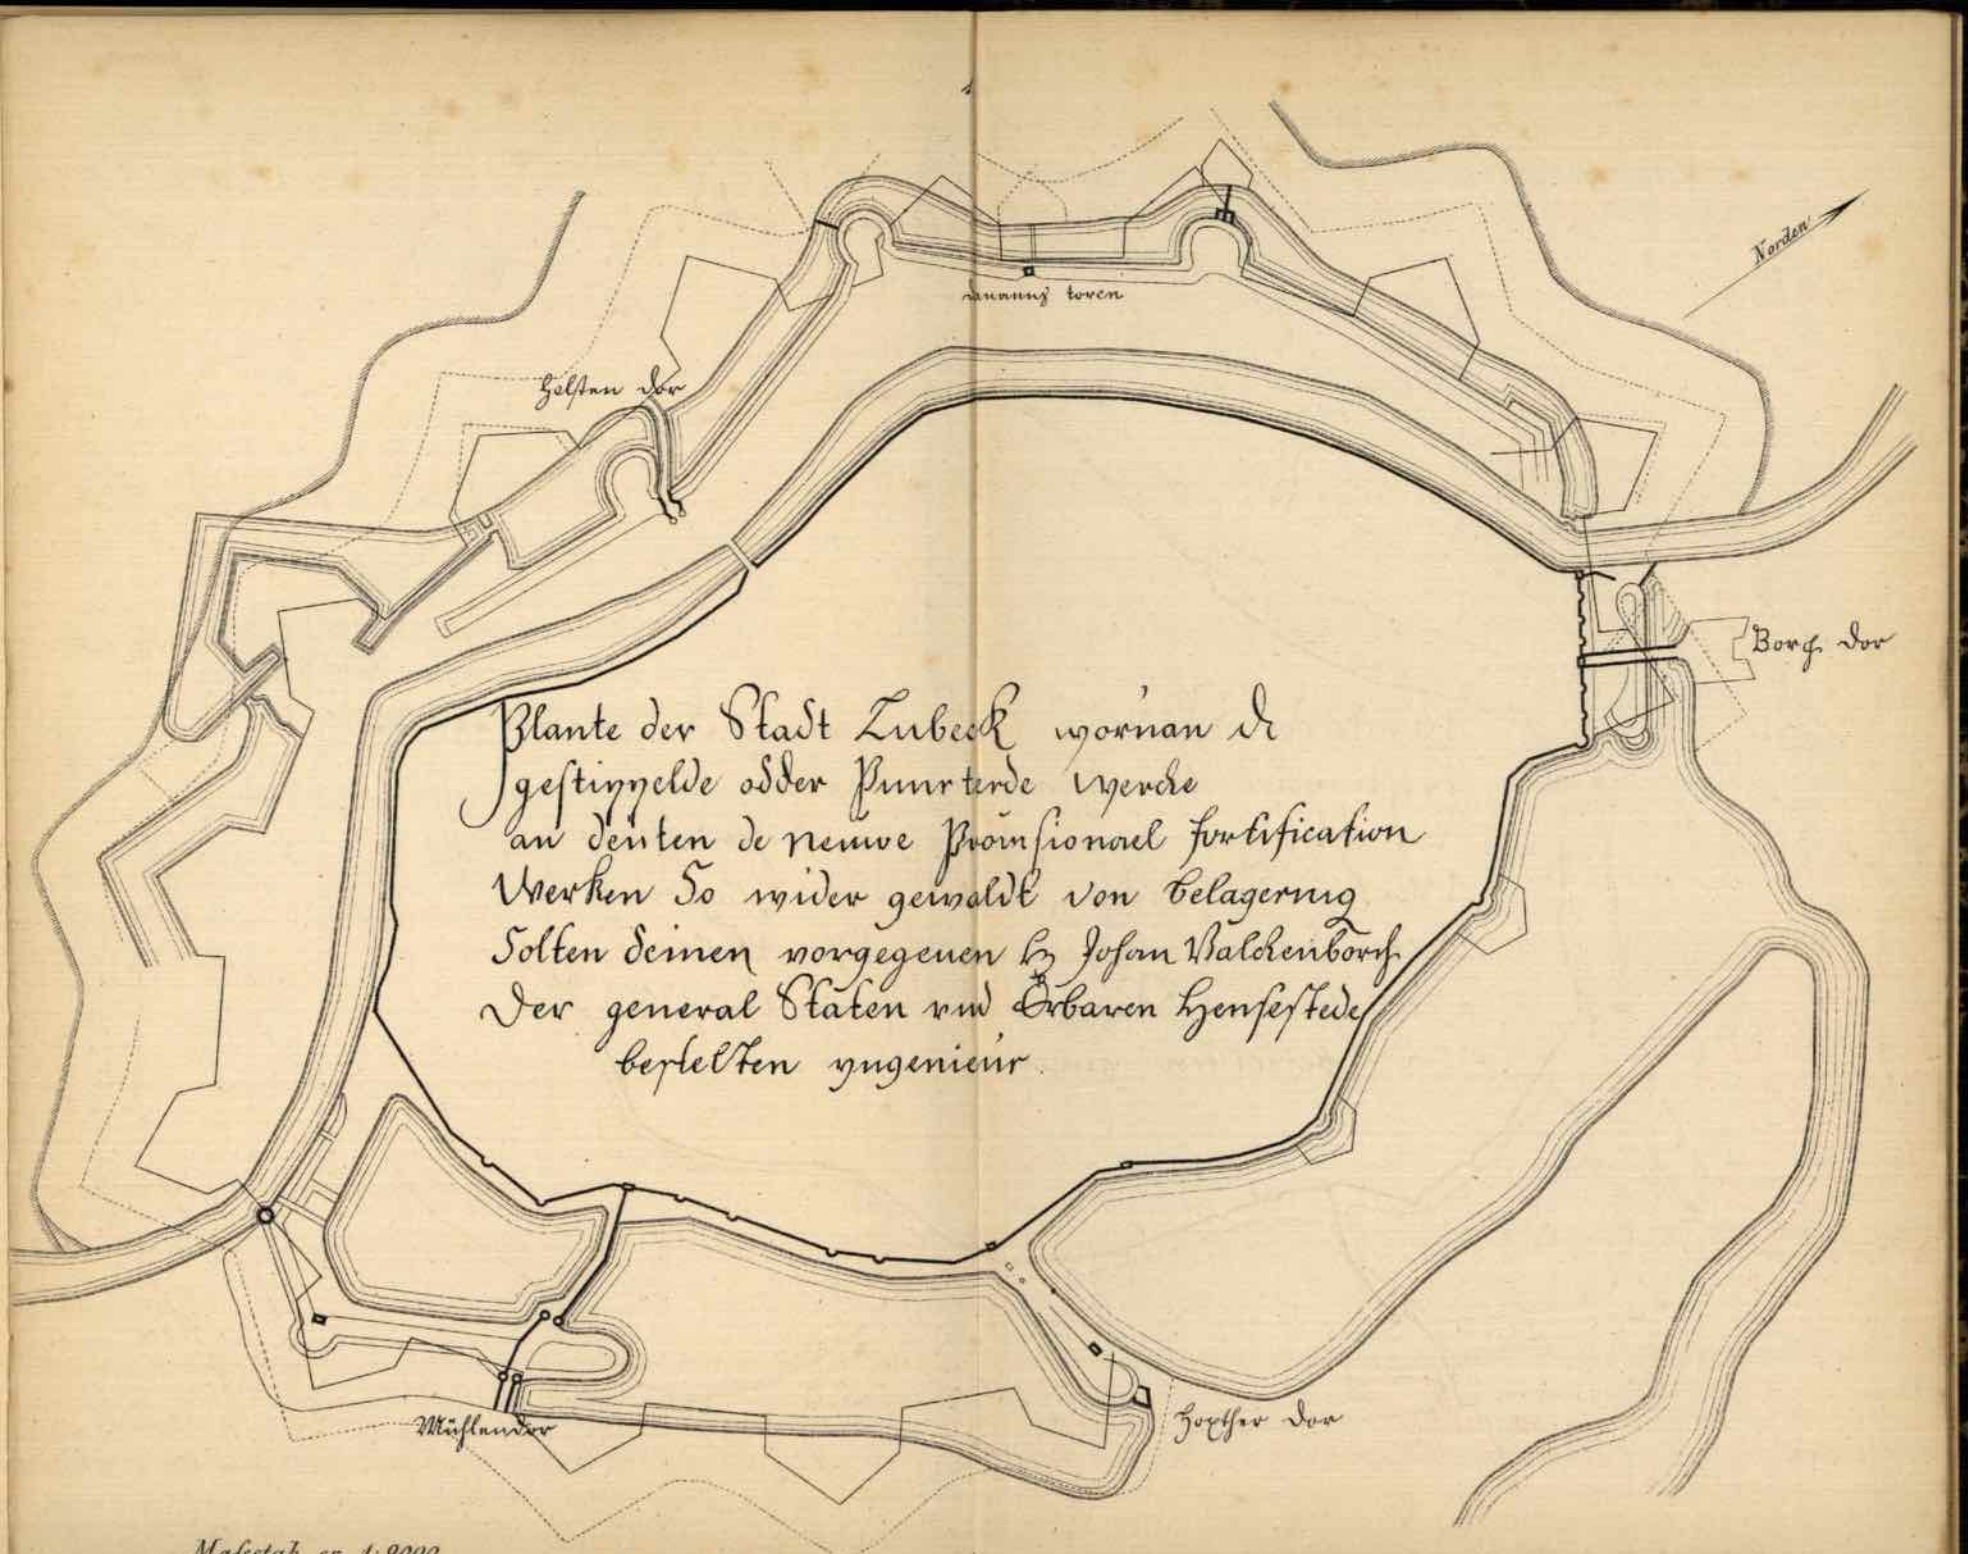 Norden
toren
Holsten dor
Borch dor
Plante der Stadt Lubeck wornan di
gestippelde odder Punrterde Wercke
an deuten de neuwe Provisionael fortification
Werken So wider gewaldt von belagerung
Solten deinen vorgegeuen by Johan Valckenborch
Der general Staten vnd Erbaren Hensestede
bestelten yngenieur.
Mühlendor
Hoxther dor
Mafsstab ca 1:8000